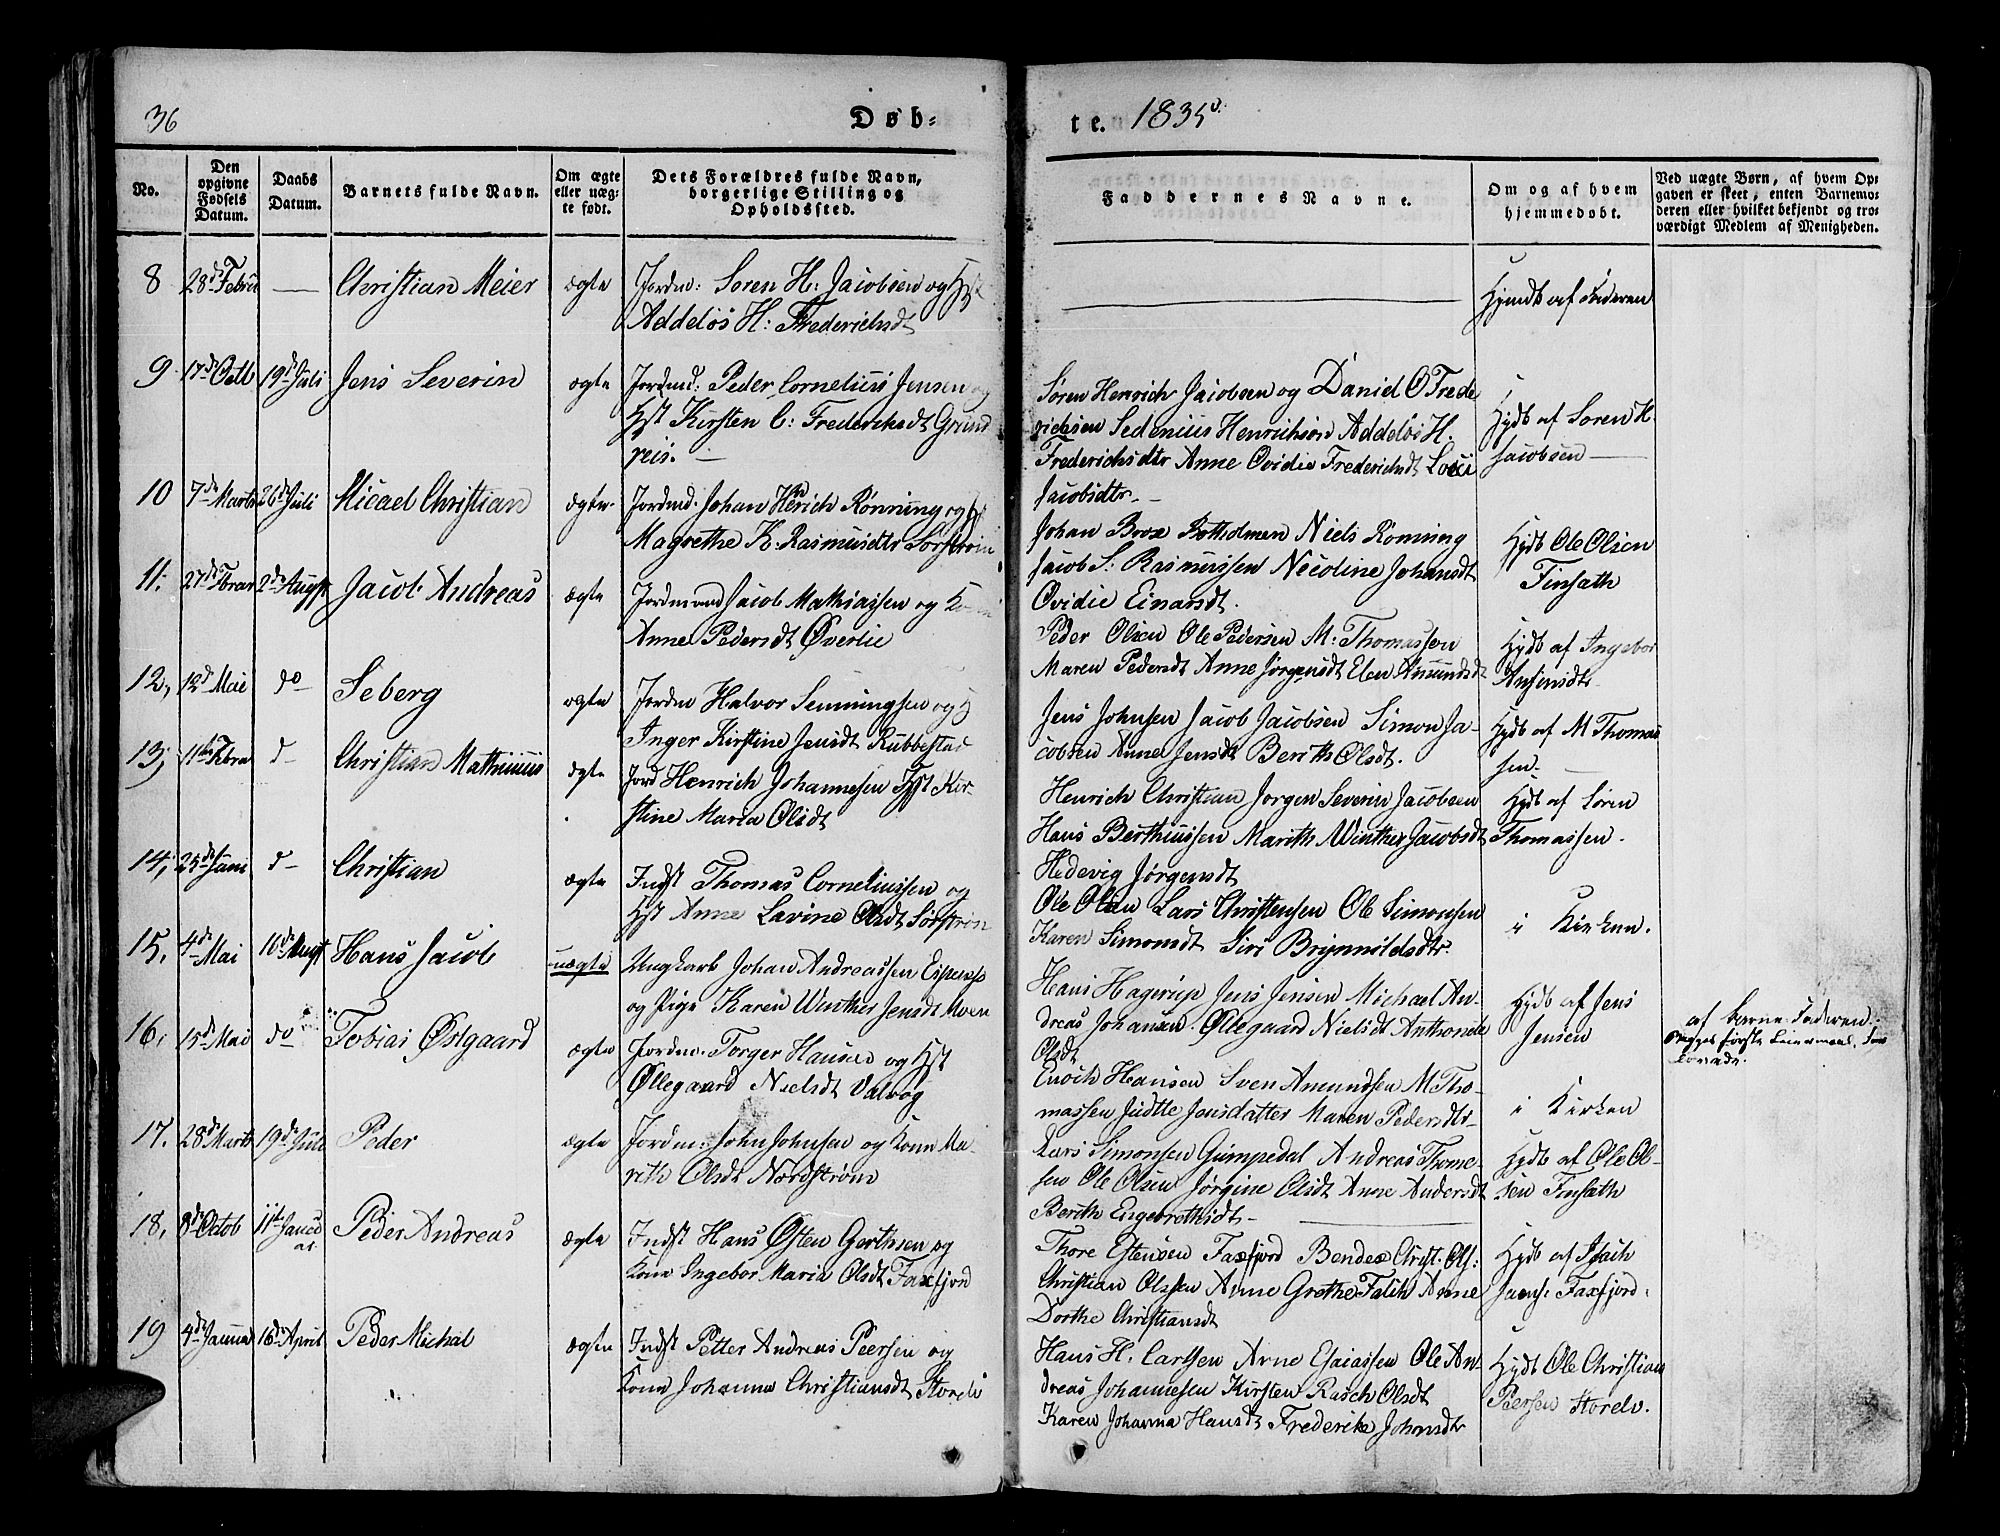 36
Døb-
te. 1835
No.
Den opgivne Fødsels Datum.
Daabs Datum.
Barnets fulde Navn.
Om ægte eller uægte født.
Dets Forældres fulde Navn, borgerlige Stilling og Opholdssted.
Faddernes Navne.
Om og af hvem hjemmedøbt.
Ved uægte Børn, af hvem Opgaven er skeet, enten Barnemoderen eller hvilket bekjendt og troværdigt Medlem af Menigheden.
8 28d Febru — Christian Meier ægte Jordm: Soren H: Jacobsen og Hst
Addelös H: Frederichsdt
Hjemdt af Faderen
9 17d Octb 19d Juli Jens Severin ægte Jordmd: Peder Cornelius Jensen og
Hst Kirsten C: Frederichsdt Grund
reis. —
Søren Henrich Jacobsen og Daniel O Frede
richsen Sedenius Henrichsen Addelös H.
Frederichsdtr Anne Ovidie Frederichsdt
Jacobsdtr —
Hjdt af Soren H.
Jacobsen —
10 7de Marts 26d Juli Micael Christian ægte Jordmd: Johan Henrich Rønning og Hst
Magrethe K. Rasmusdtr Sørstrøm
Johan Brox Niels Rønning
Jacob S. Rasmussen Nicoline Johansdt
Ovidie Einarsdt.
Hjdt Ole Olsen
Finsæth
11. 27de Febrar 2de Augst Jacob Andreas ægte Jordmand Jacob Mathiassen og Kone
Anne Pedersdt Øverlie
Peder Olsen Ole Pedersen M. Thomassen
Maren Pedersdt Anne Jørgensdt Elen Amundsdt
Hjdt af Ingebor
12, 12d Mai do Seberg ægte Jordm Halvor Semmingsen og H
Inger Kirstine Jensdt Rubbestad
Jens Johnsen Jacob Jacobsen Simon Ja-
cobsen Anne Jensdt Berith Olsdt.
Hjdt af M Thomas
sen.
13, 11te Febra d— Christian Mathinius ægte Jord Henrich Johannesen Hst Kir-
stine Maria Olsdt
Henrich Christian Jørgen Severin Jacobsen
Hans Berthiussen Marith Winther Jacobsdt
Hedevig Jørgensdt
Hjdt af Sören
Thomassen.
14, 25de Juni d— Christian ægte Indst Thomas Corneliussen og
Hst Anne Lavine Olsdt Sørstrøm
Ole Olsen Lars Christensen Ole Simonsen
Karen Simonsdt Siri Brynnildsdtr.
i Kirken.
15. 4de Mai 16de Augst Hans Jacob uægte Ungkarl Johan Andreassen
og Pige Karen Winther Jensdt Moen
Hans Hagerup Jens Jensen Michael An-
dreas Johansen. Øllegaard Nielsdt Anthonete
Olsdt
Hjdt af Jens
Jensen
af Barne-Faderen.
Begges første Leiermaal.
16, 15de Mai do Tobias Østgaard ægte Jordm: Torger Hansen og Hst
Øllegaard Nielsdt Valvog
Enoch Hansen Sven Amundsen M Tho-
massen Judtle Jonsdatter Maren Pedersdtr
i Kirken
17. 28d Marts 19d Juli Peder ægte Jordm: John Johnsen og Kone Ma-
rith Olsdt Nordstrøm
Lars Simonsen Gumpedal Andreas Thome-
sen Ole Olsen Jørgine Olsdt Anne Andersdt
Berith Engebrethsdt —
Hjdt af Ole Ol-
sen Finsæth
18, 8d Octob 11te Janu ar Peder Andreas ægte Indst Hans Østen Gerthsen og
Kone Ingebor Maria Olsdt Faxfjord
Thore Estensen Faxfjord Bendex Chrst. Ols:
Christian Olssen Anne Grethe Falch Anne
Dorthe Christiansdt
Hjdt af Isach
Jaens. Faxfjord.
19 4de Januar 16de April Peder Michal ægte Indst Petter Andreas Peersen og
Kone Johanna Christiansdt Storelv
Hans H. Carlsen Arne Esaiassen Ole An-
dreas Johannesen Kirsten Rasch Olsdt
Karen Johanna Hansdt Frederike Johnsdtr
Hjdt Ole Christian
Peersen Storelv.